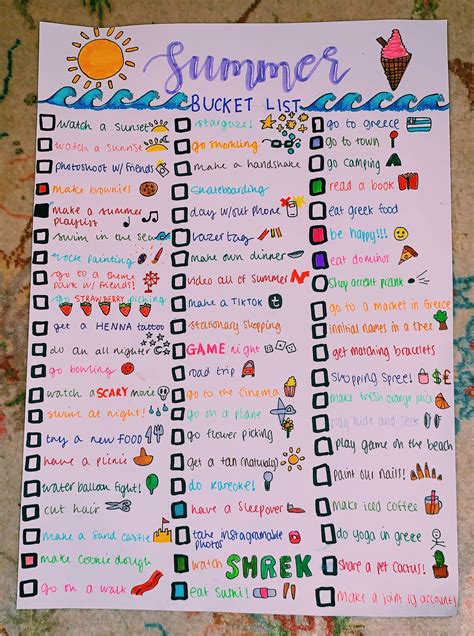 Summer
BUCKET LIST
watch a sunset
watch a sunrise
photoshoot w/ friends
make brownies
make a summer
playlist
swim in the sea
rock painting
go to a theme
park w/ friends!
go STRAWBERRY picking
get a HENNA tattoo
do an all nighter
go bowling
watch a SCARY movie
swim at night!
try a new FOOD
have a picnic
water balloon fight!
cut hair
make a sand castle
make cookie dough
go on a walk
stargaze!
go snorkling
make a handshake
skateboarding
day w/out phone
Lazer tag
make own dinner
video all of summer
make a TIKTOK
stationary shopping
GAME night
road trip
go to the cinema
go on a plane
go flower picking
get a tan (naturally)
do kareoke!
have a sleepover
take instagramable
photos
watch SHREK
eat sushi!
go to greece
go to town
go camping
read a book
eat greek food
be happy!!!
eat dominos
Shop accent prank
go to a market in Greece
innitial names in a tree
get matching bracelets
shopping spree! $ £
make fresh orange juice
play hide and seek
play game on the beach
paint our nails!
make iced coffee
do yoga in greece
share a pet cactus!
make a joint ig account!